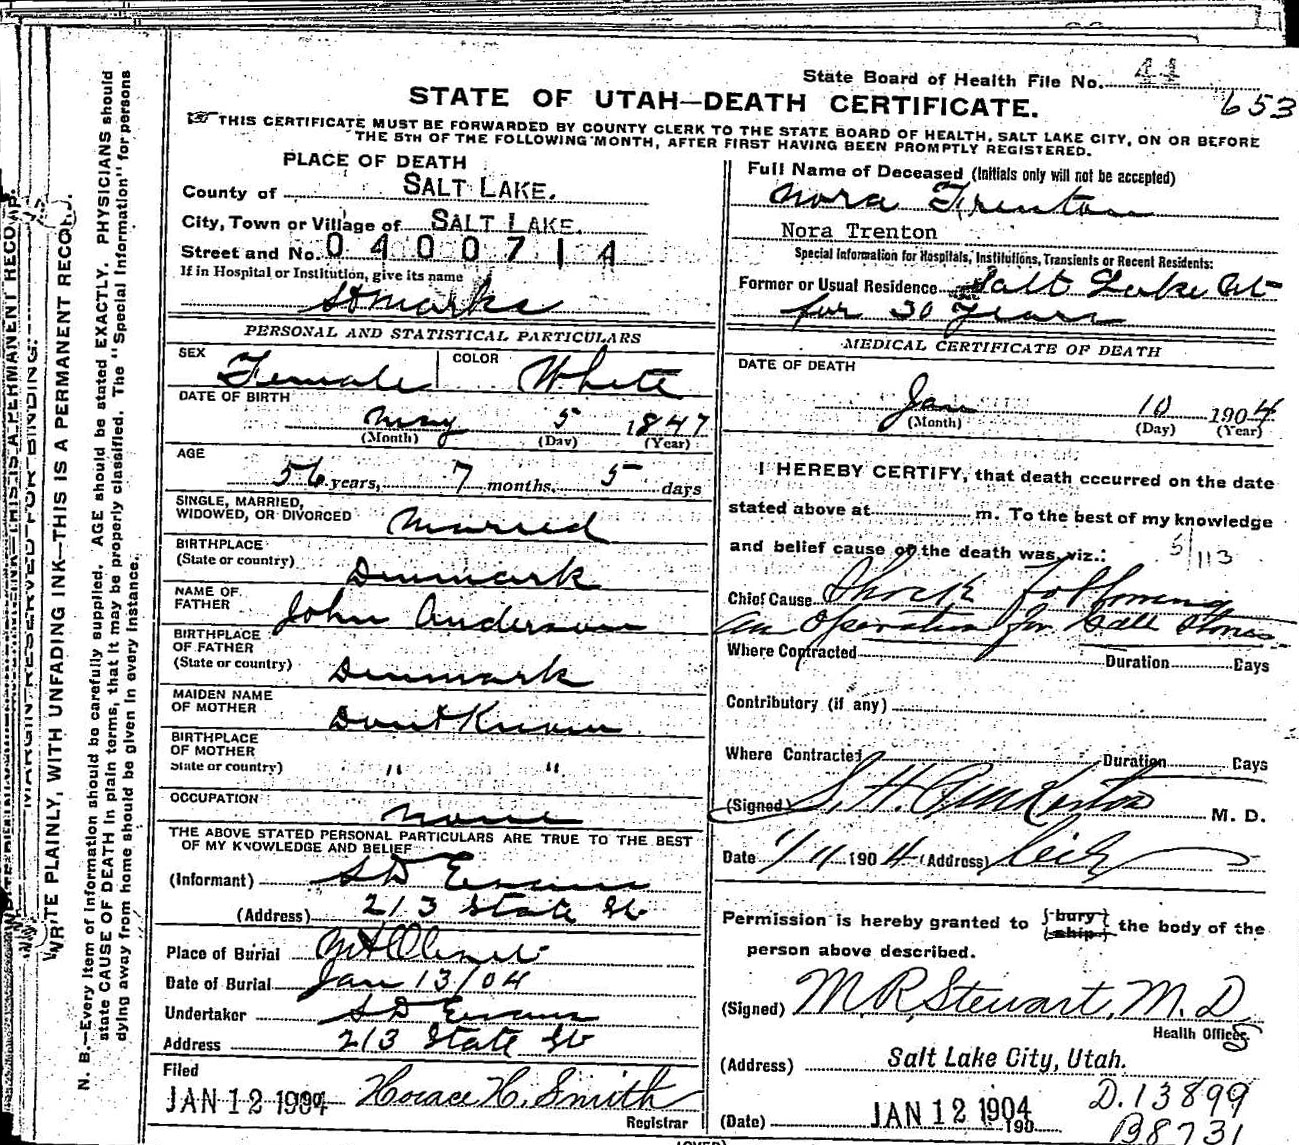 State Board of Health File No. 44
653
STATE OF UTAH—DEATH CERTIFICATE.
☞ THIS CERTIFICATE MUST BE FORWARDED BY COUNTY CLERK TO THE STATE BOARD OF HEALTH, SALT LAKE CITY, ON OR BEFORE
THE 5TH OF THE FOLLOWING MONTH, AFTER FIRST HAVING BEEN PROMPTLY REGISTERED.
PLACE OF DEATH
County of SALT LAKE.
City, Town or Village of SALT LAKE.
Street and No. 0400714
If in Hospital or Institution, give its name
St Marks
PERSONAL AND STATISTICAL PARTICULARS
SEX Female COLOR White
DATE OF BIRTH
May 5 1847
(Month) (Day) (Year)
AGE
56 years, 7 months, 5 days
SINGLE, MARRIED,
WIDOWED, OR DIVORCED Married
BIRTHPLACE
(State or country) Denmark
NAME OF
FATHER John Anderson
BIRTHPLACE
OF FATHER
(State or country) Denmark
MAIDEN NAME
OF MOTHER Dont Know
BIRTHPLACE
OF MOTHER
State or country) " "
OCCUPATION None
THE ABOVE STATED PERSONAL PARTICULARS ARE TRUE TO THE BEST
OF MY KNOWLEDGE AND BELIEF
(Informant) S D Evans
(Address) 213 State St
Place of Burial Mt Olivet
Date of Burial Jan 13/04
Undertaker S D Evans
Address 213 State St
Filed
JAN 12 1904 Horace H. Smith
Registrar
Full Name of Deceased (Initials only will not be accepted)
Nora Trenton
Nora Trenton
Special Information for Hospitals, Institutions, Transients or Recent Residents:
Former or Usual Residence Salt Lake
for 30 Years
MEDICAL CERTIFICATE OF DEATH
DATE OF DEATH
Jan 10 1904
(Month) (Day) (Year)
I HEREBY CERTIFY, that death occurred on the date
stated above at m. To the best of my knowledge
and belief cause of the death was, viz.: 5/113
Chief Cause Shock following
an Operation for Gall Stones
Where Contracted Duration Days
Contributory (if any)
Where Contracted Duration Days
(Signed) S. H. Pinkerton M. D.
Date 1/11 1904 (Address) City
Permission is hereby granted to {bury} {ship} the body of the
person above described.
(Signed) M. R. Stewart, M. D.
Health Officer
(Address) Salt Lake City, Utah.
D. 13899
(Date) JAN 12 1904 190
B8731
(OVER)
MARGIN RESERVED FOR BINDING.
WRITE PLAINLY, WITH UNFADING INK—THIS IS A PERMANENT RECORD.
N. B.—Every item of information should be carefully supplied. AGE should be stated EXACTLY. PHYSICIANS should
state CAUSE OF DEATH in plain terms, that it may be properly classified. The "Special Information" for persons
dying away from home should be given in every instance.